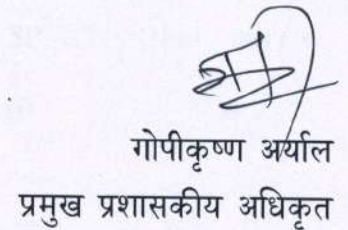 गोपीकृष्ण अर्याल
प्रमुख प्रशासकीय अधिकृत